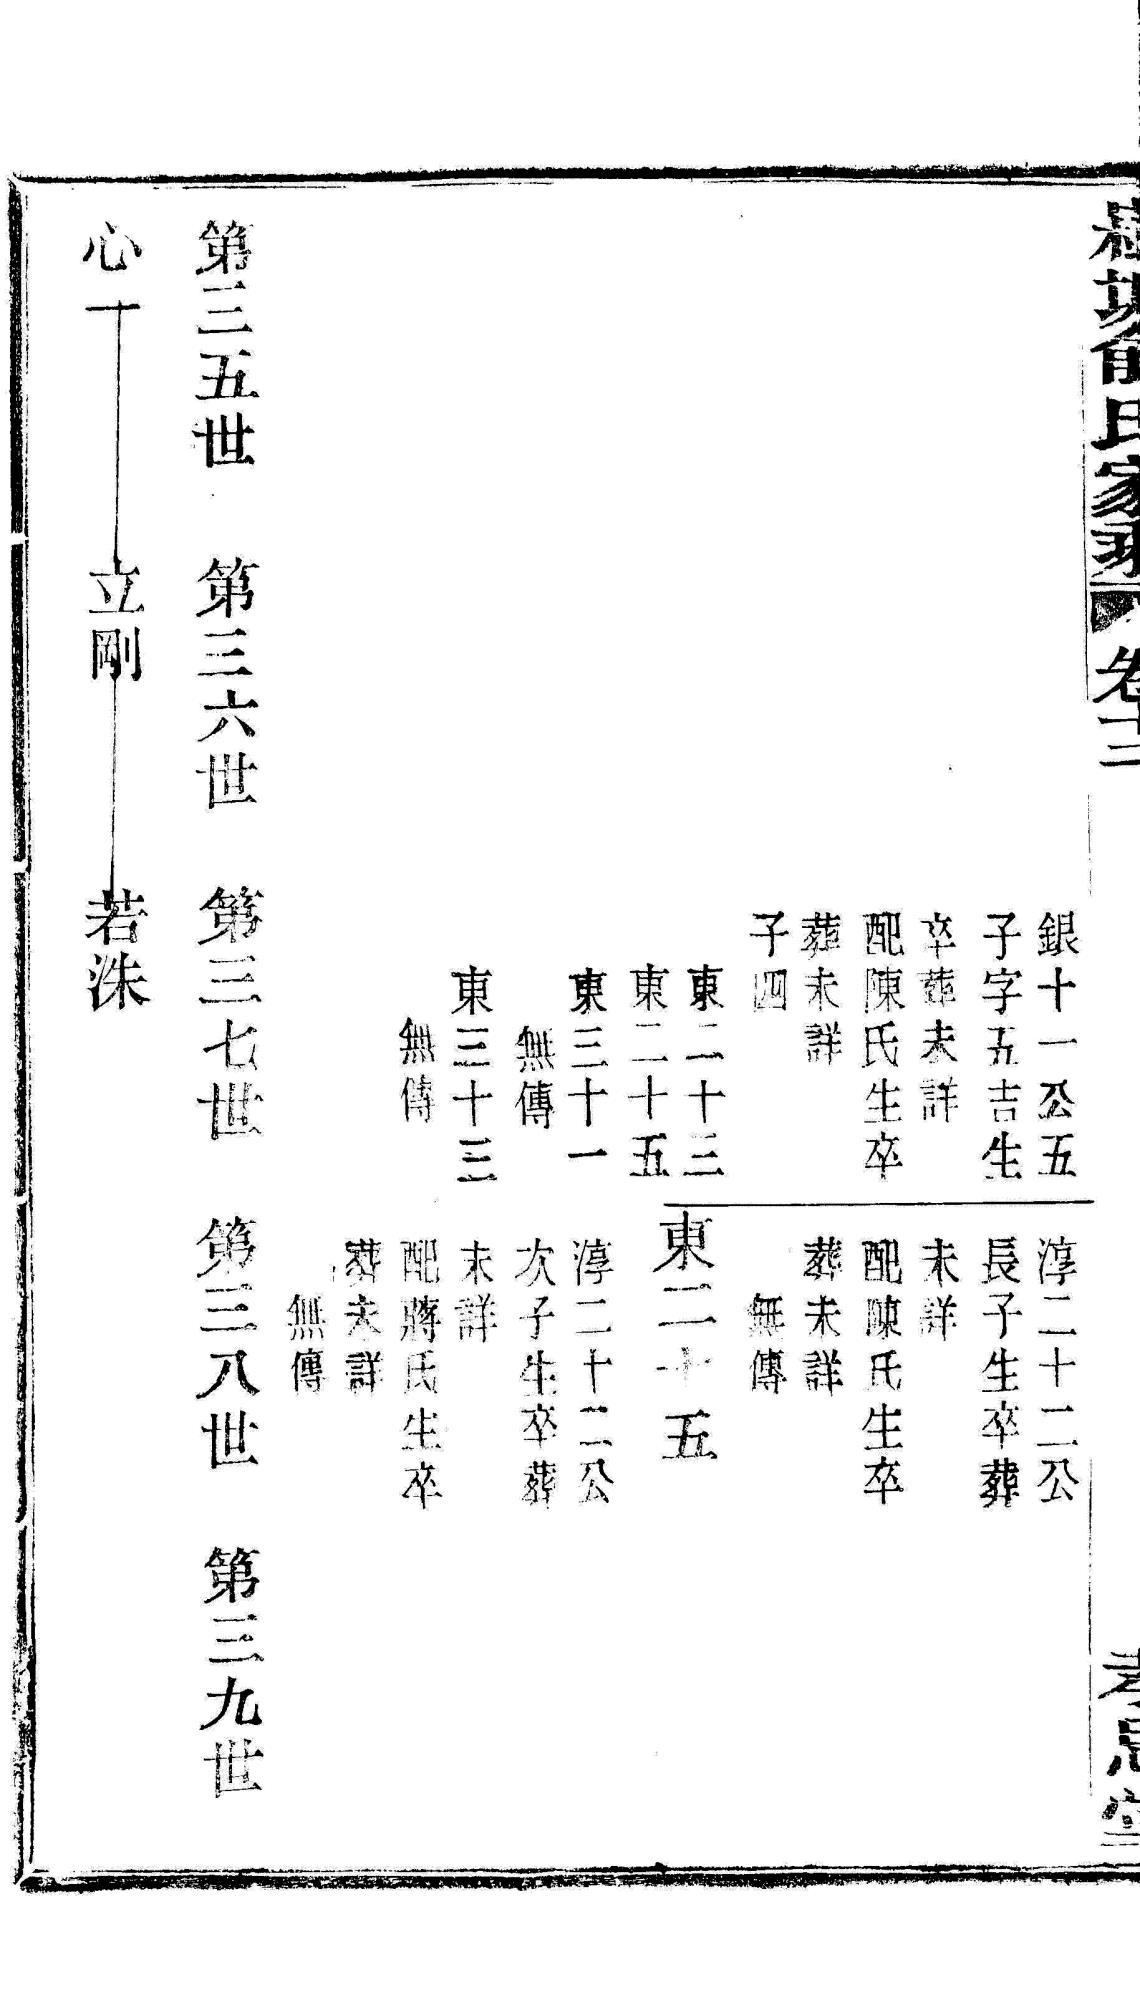 俞氏家乘 卷十三
孝思堂
銀十一公五
子字五吉生
卒葬未詳
配陳氏生卒
葬未詳
子四
東二十三
東二十五
東三十一
無傳
東三十三
無傳
淳二十二公
長子生卒葬
未詳
配陳氏生卒
葬未詳
無傳
東二十五
淳二十二公
次子生卒葬
未詳
配蔣氏生卒
葬未詳
無傳
第三五世 第三六世 第三七世 第三八世 第三九世
心一 立剛 若洙